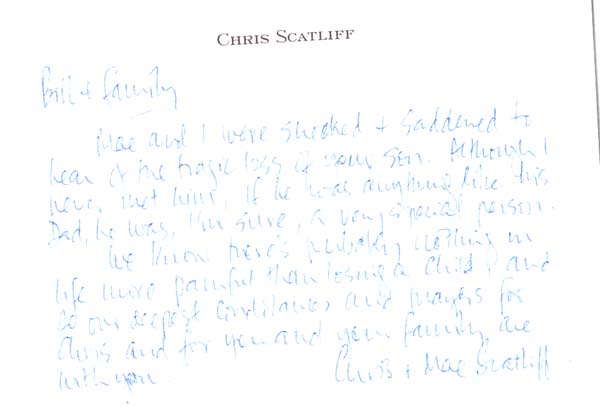 CHRIS SCATLIFF
Bill + family
Mae and I were shocked + saddened to
hear of the tragic loss of your son. Although I
never met him, if he was anything like his
Dad, he was, I'm sure, a very special person.
We know there's probably nothing in
life more painful than losing a child, and
so our deepest condolences and prayers for
Chris and for you and your family, are
with you.
Chris + Mae Scatliff